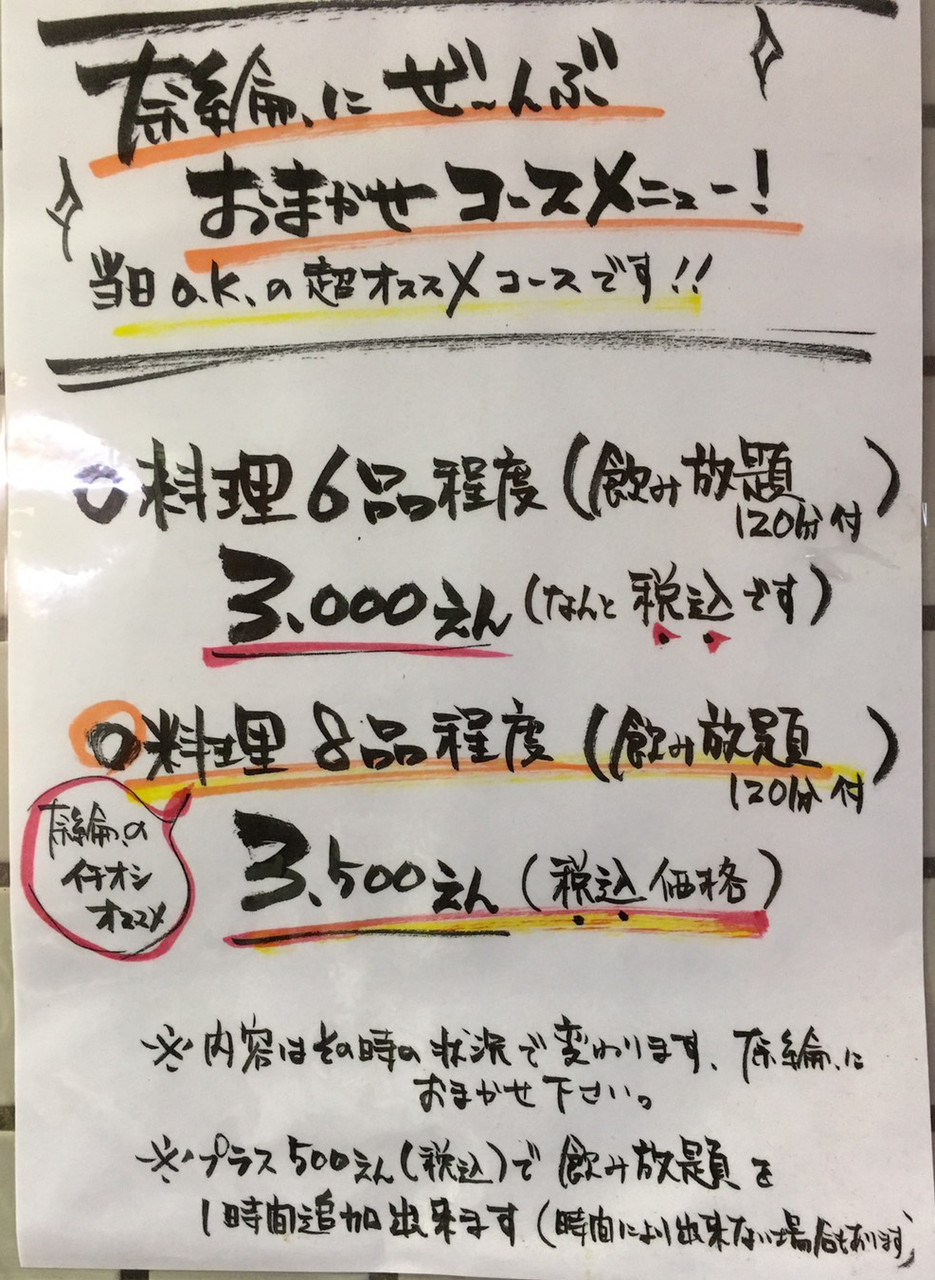 奈綸にぜ〜んぶ
おまかせコースメニュー!
当日O.K.の超オススメコースです!!
○料理6品程度(飲み放題
120分付)
3,000えん(なんと税込です)
○料理8品程度(飲み放題
120分付)
奈綸の
イチオシ
オススメ
3,500えん(税込価格)
※内容はその時の状況で変わります、奈綸に
おまかせ下さい。
※プラス500えん(税込)で飲み放題を
1時間追加出来ます(時間により出来ない場合もあります)